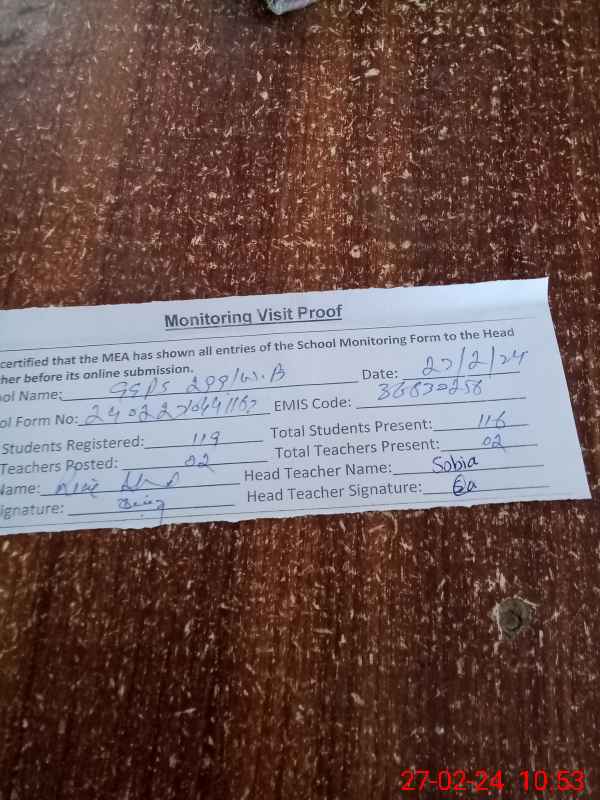 Monitoring Visit Proof
certified that the MEA has shown all entries of the School Monitoring Form to the Head
her before its online submission.
ol Name: GGPS 299/W.B Date: 27/2/24
ol Form No: EMIS Code: 36630256
Students Registered: 119 Total Students Present: 116
Teachers Posted: 02 Total Teachers Present: 02
Name: Head Teacher Name: Sobia
ignature: Head Teacher Signature:
27-02-24 10:53